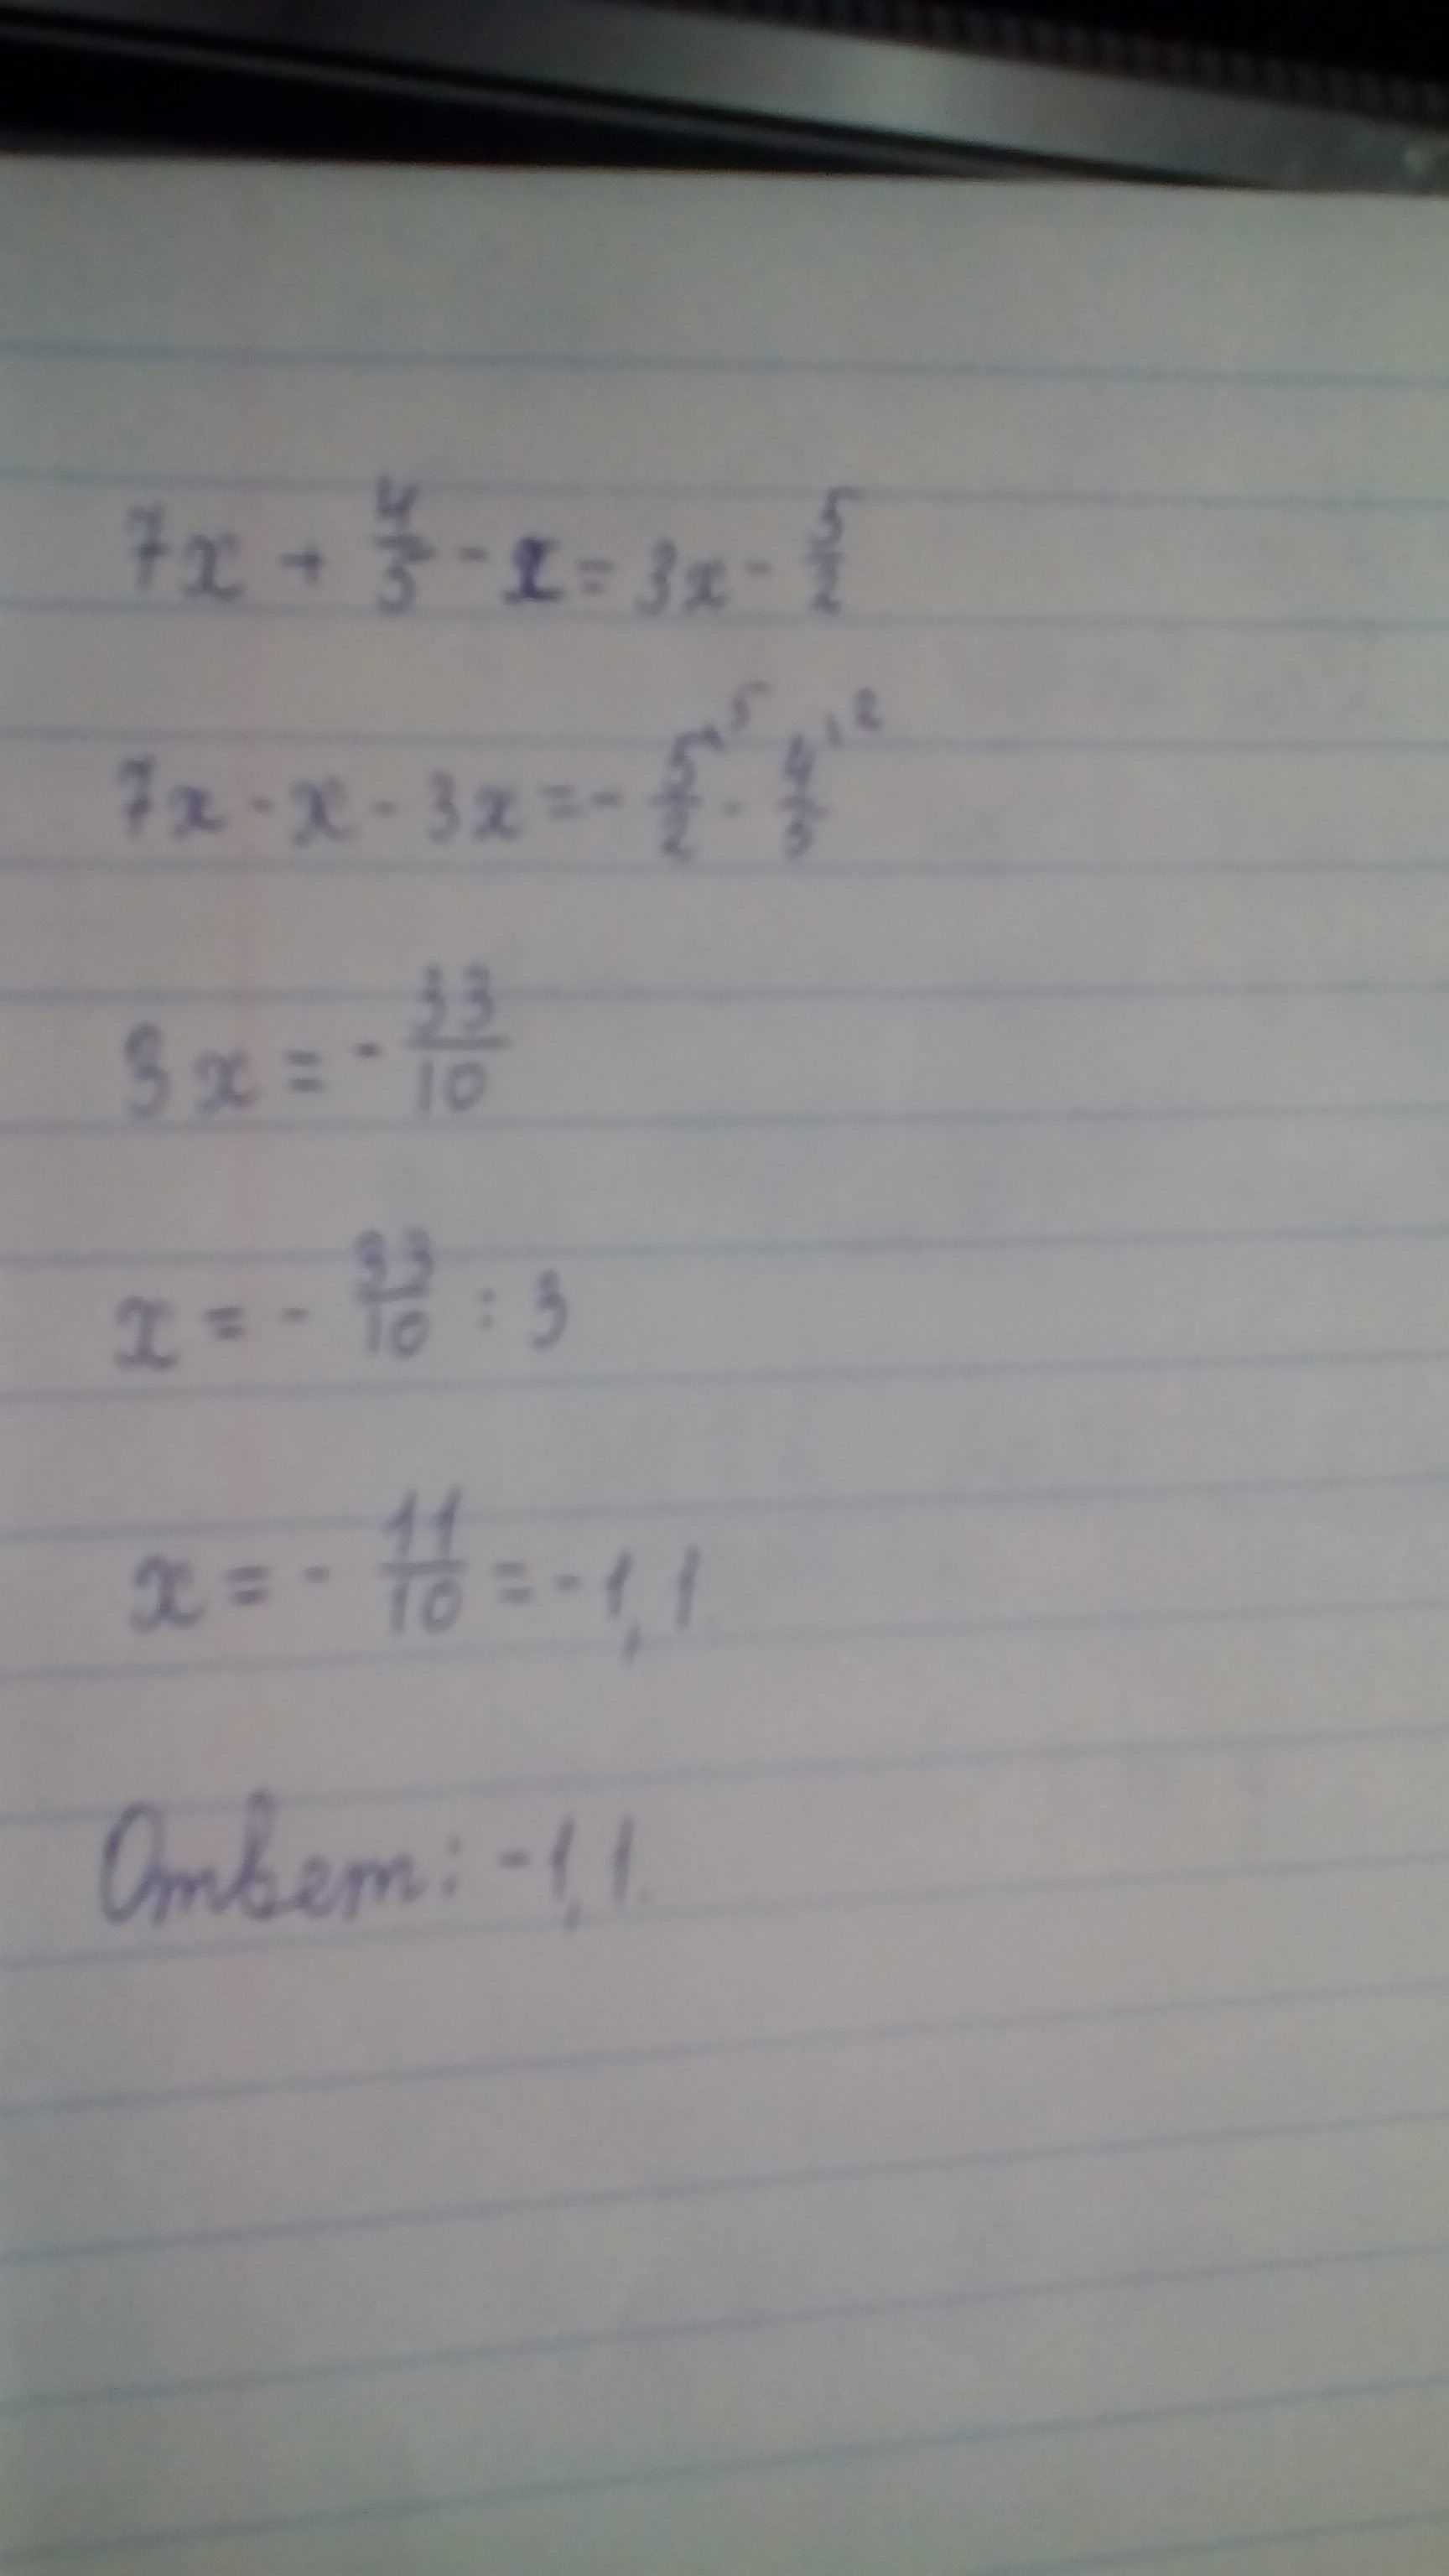 7x + 4/5 - x = 3x - 5/2
7x - x - 3x = - 5/2 ^5 - 4/5 ^2
3x = - 33/10
x = - 33/10 : 3
x = - 11/10 = -1,1
Ответ: -1,1.